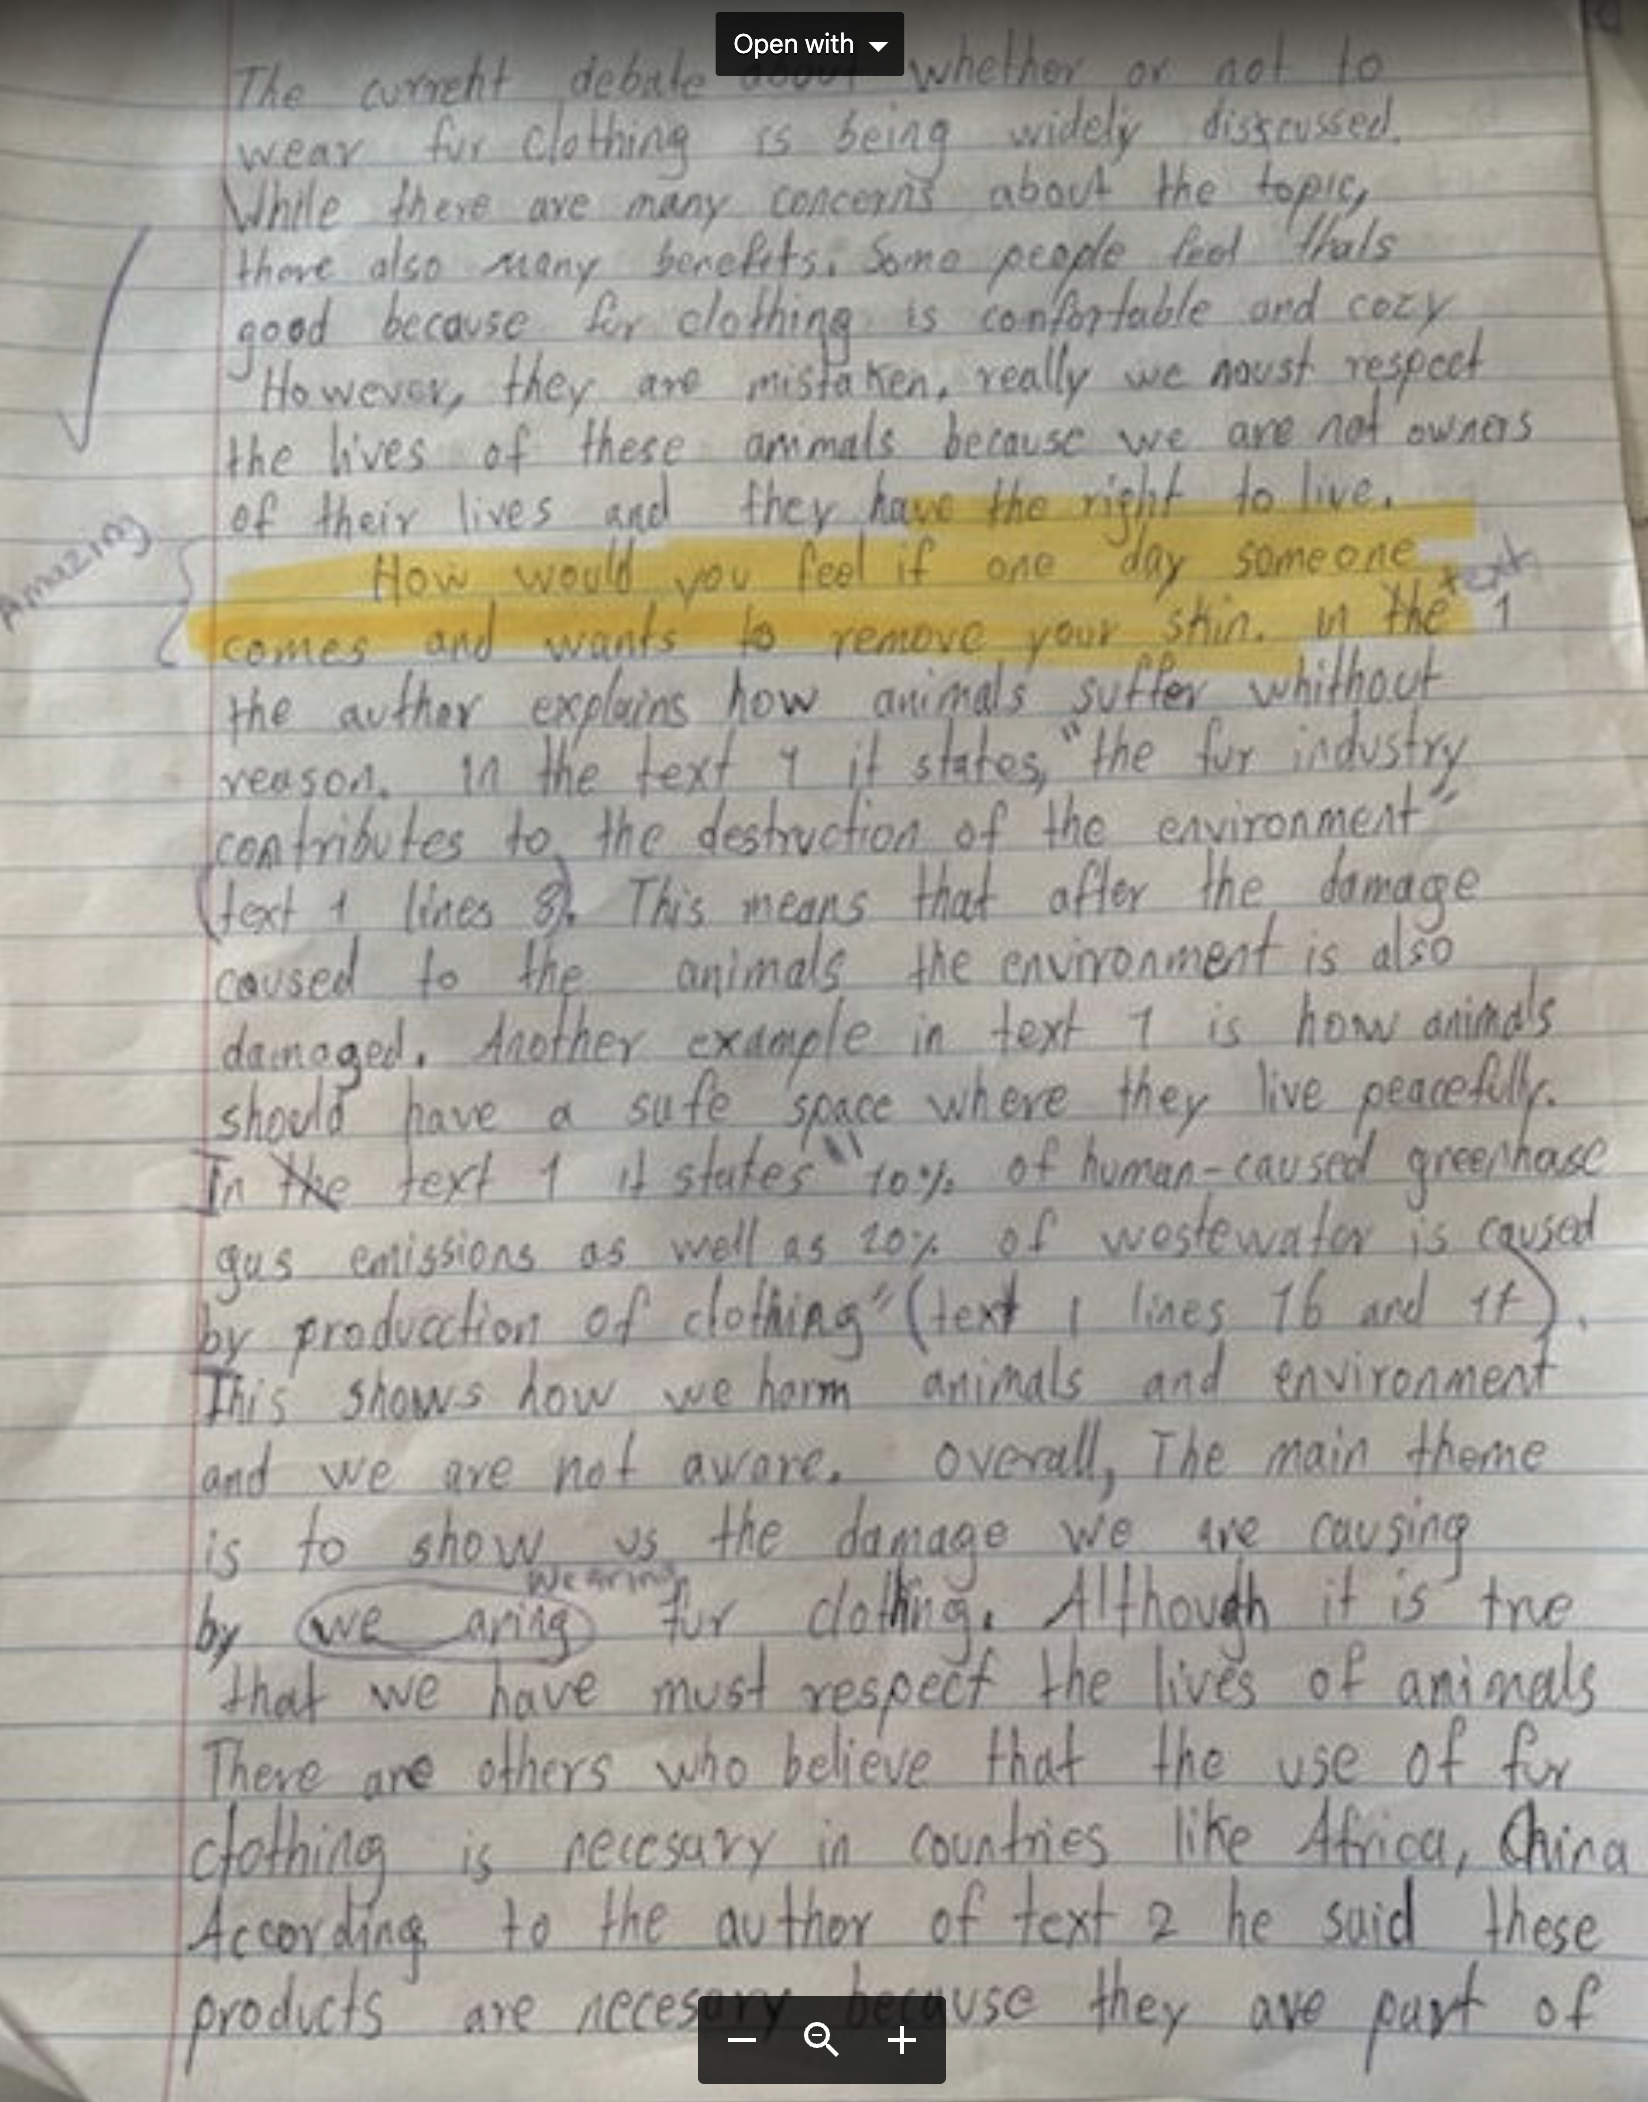 Open with
The current debate about whether or not to
wear fur clothing is being widely disscussed.
While there are many concerns about the topic,
there also many benefits. Some people feel thats
good because fur clothing is confortable and cozy
However, they are mistaken, really we must respect
the lives of these animals because we are not owners
of their lives and they have the right to live.
Amazing
How would you feel if one day someone
text
comes and wants to remove your skin. in the 1
the author explains how animals suffer whithout
reason. in the text 1 it states, "the fur industry
contributes to the destruction of the environment"
(text 1 lines 3). This means that after the damage
caused to the animals the environment is also
damaged. Another example in text 1 is how animals
should have a safe space where they live peacefully.
In the text 1 it states "10% of human-caused greenhase
gas emissions as well as 20% of wastewater is caused
by producction of clothing" (text 1 lines 16 and 17).
This shows how we harm animals and environment
and we are not aware. overall, The main theme
is to show us the damage we are causing
wearing
by we aring fur clothing. Although it is true
that we have must respect the lives of animals
There are others who believe that the use of fur
clothing is necesary in countries like Africa, China
According to the author of text 2 he said these
products are necesary because they are part of